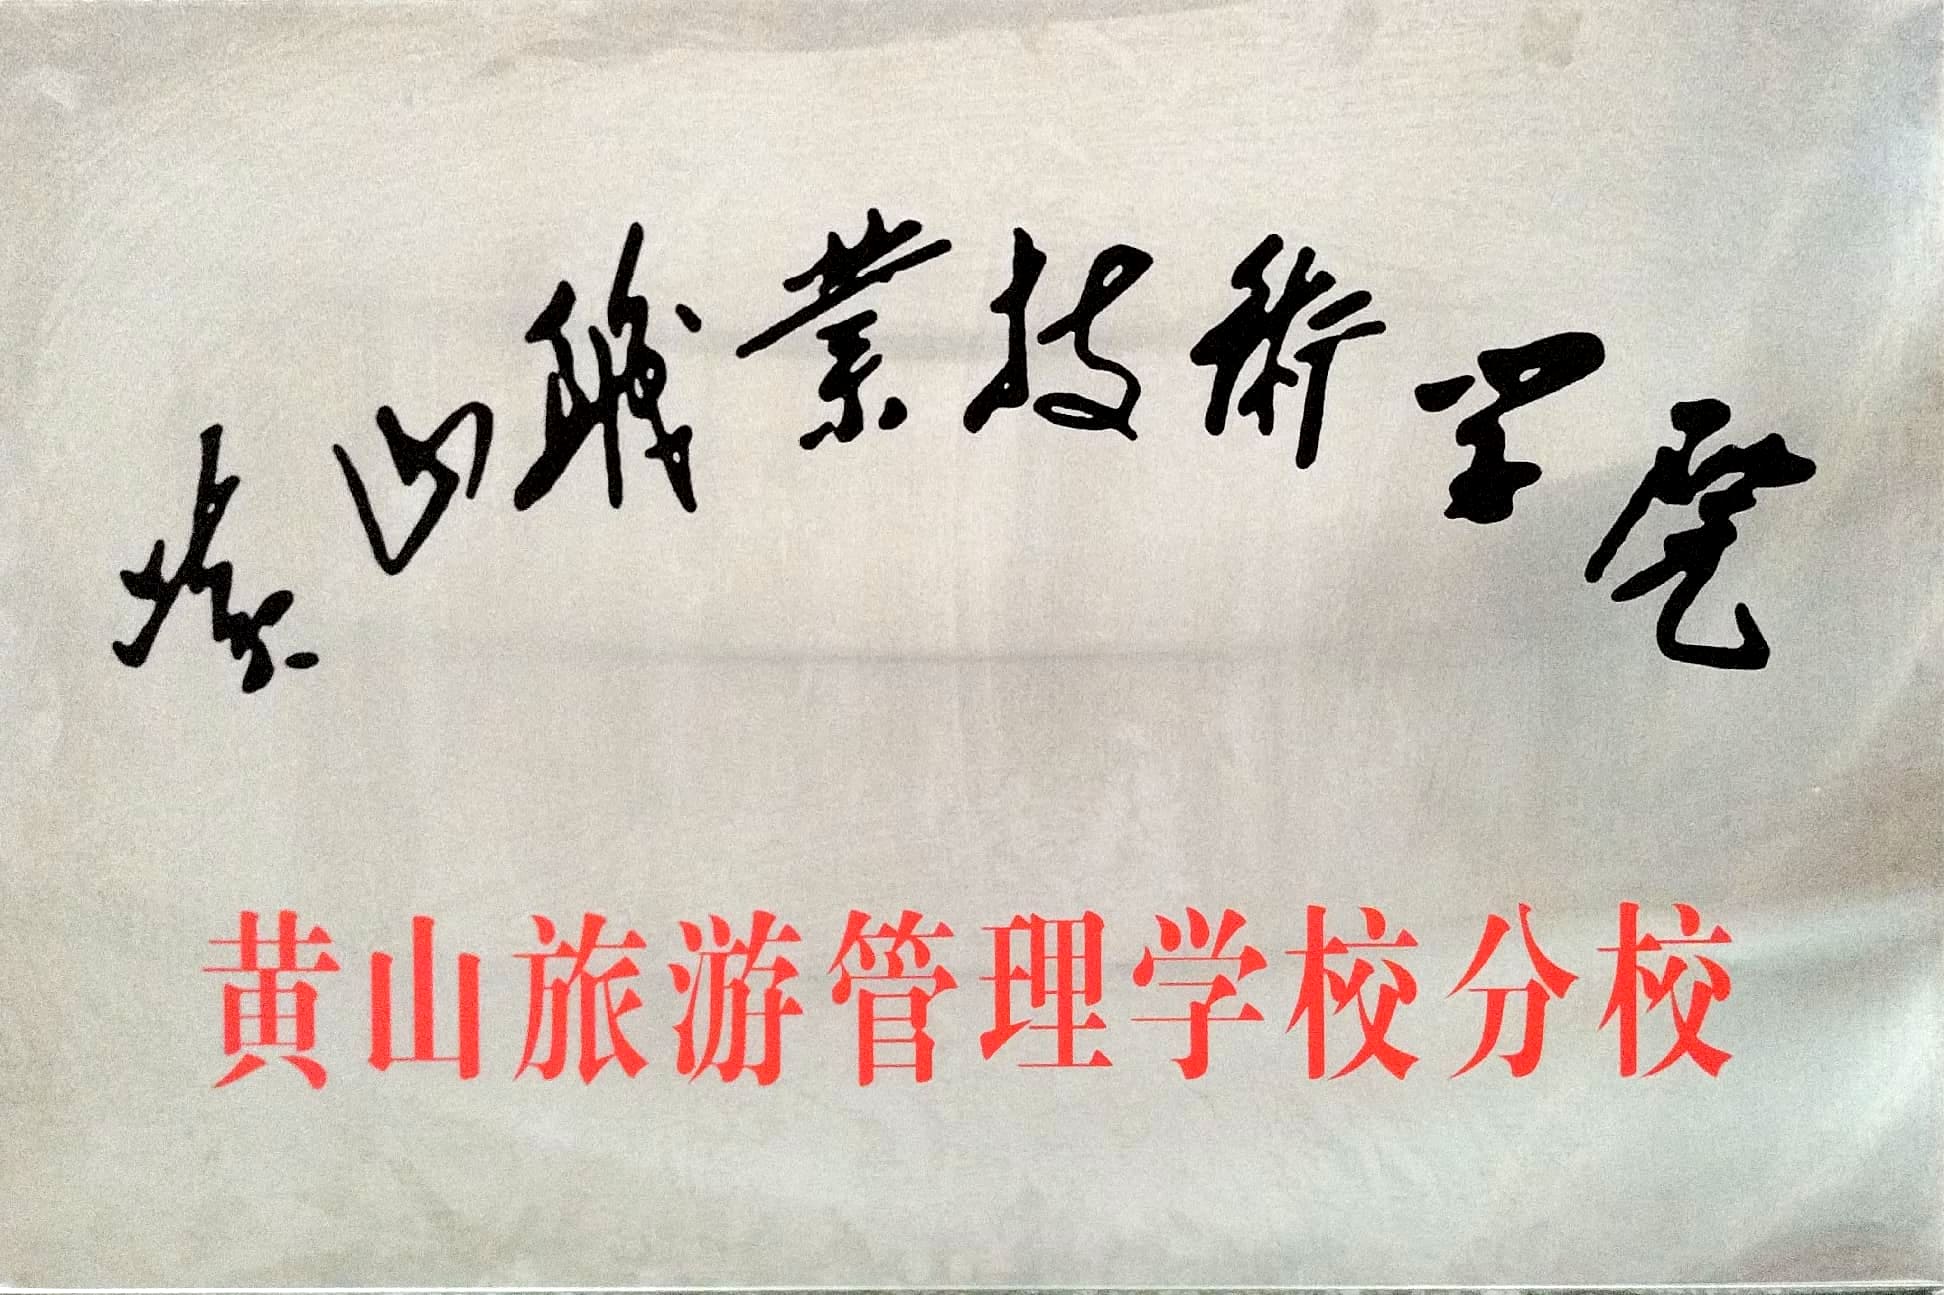 黄山職業技術学院
黄山旅游管理学校分校